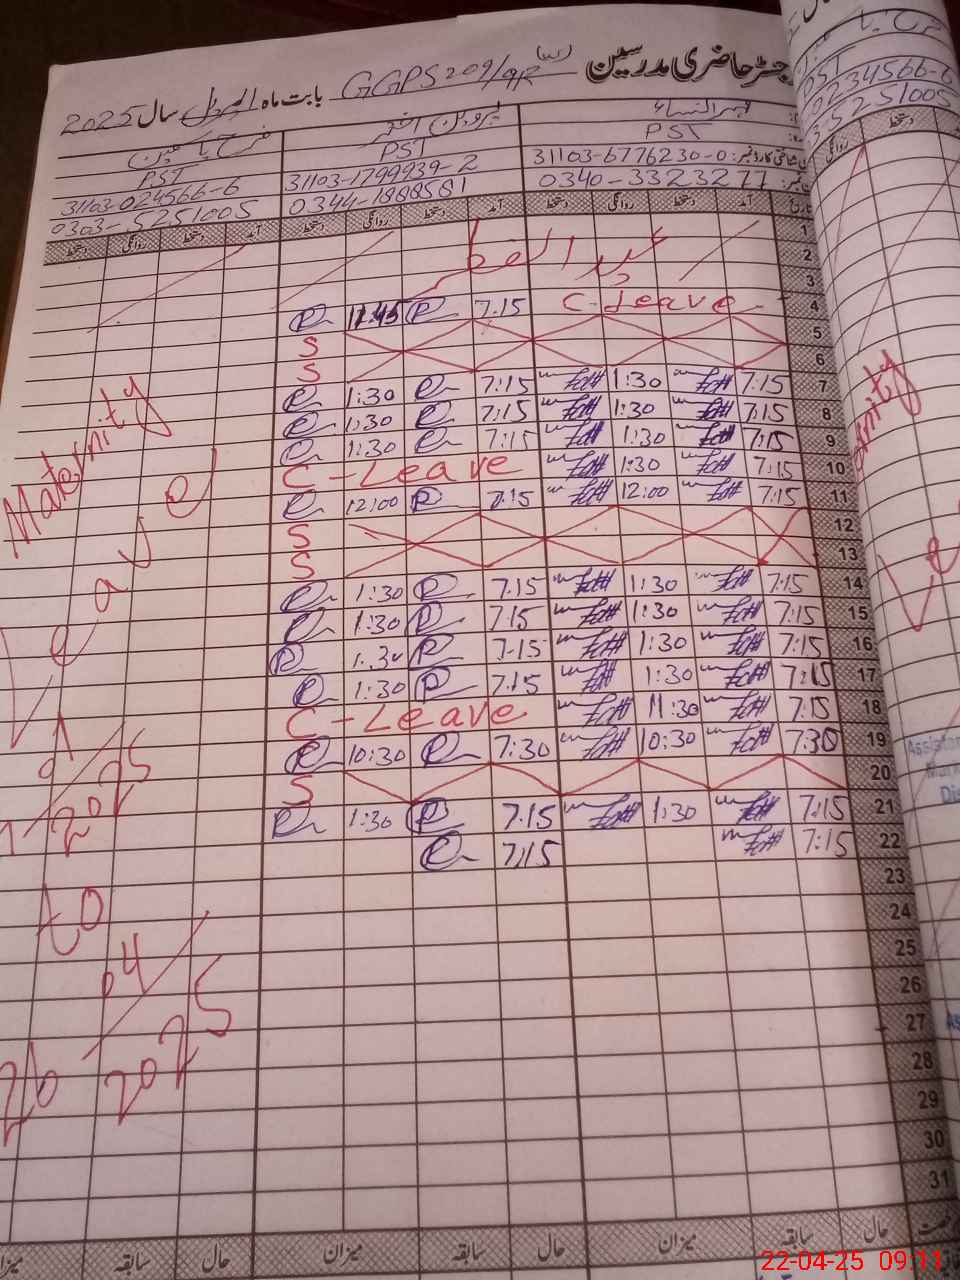 رجسٹر حاضری مدرسین GGPS 209/9R (w) بابت ماہ اپریل سال 2025
مہرالنساء پروین اختر فرح یاسمین
PST PST PST
شناختی کارڈ نمبر: 31103-6776230-0 31103-1799939-2 31103-024566-6
0340-3323277 0344-1888581 0303-5251005
تاریخ آمد دستخط روانگی دستخط آمد دستخط روانگی دستخط آمد دستخط روانگی دستخط
1
2 عید الفطر
3
4 C-Leave 7.15 11:45
5 S
6 S
7 7:15 1:30 7:15 1:30
8 7:15 1:30 7:15 1:30
9 7:15 1:30 7:15 1:30
10 7:15 1:30 C-Leave
11 7:15 12:00 7.15 12:00
12 S
13 S
14 7:15 1:30 7.15 1:30
15 7:15 1:30 7.15 1:30
16 7:15 1:30 7.15 1:30
17 7:15 1:30 7.15 1:30
18 7:15 11:30 C-Leave
19 7:30 10:30 7:30 10:30
20 S
21 7:15 1:30 7.15 1:30
22 7:15 7:15
23
24
25
26
27
28
29
30
31
Maternity
Leave
to
26/04/2025
حال سابقہ میزان حال سابقہ میزان حال سابقہ میزان
PST
0234566-6
5251005
دستخط
روانگی
22-04-25 09:11